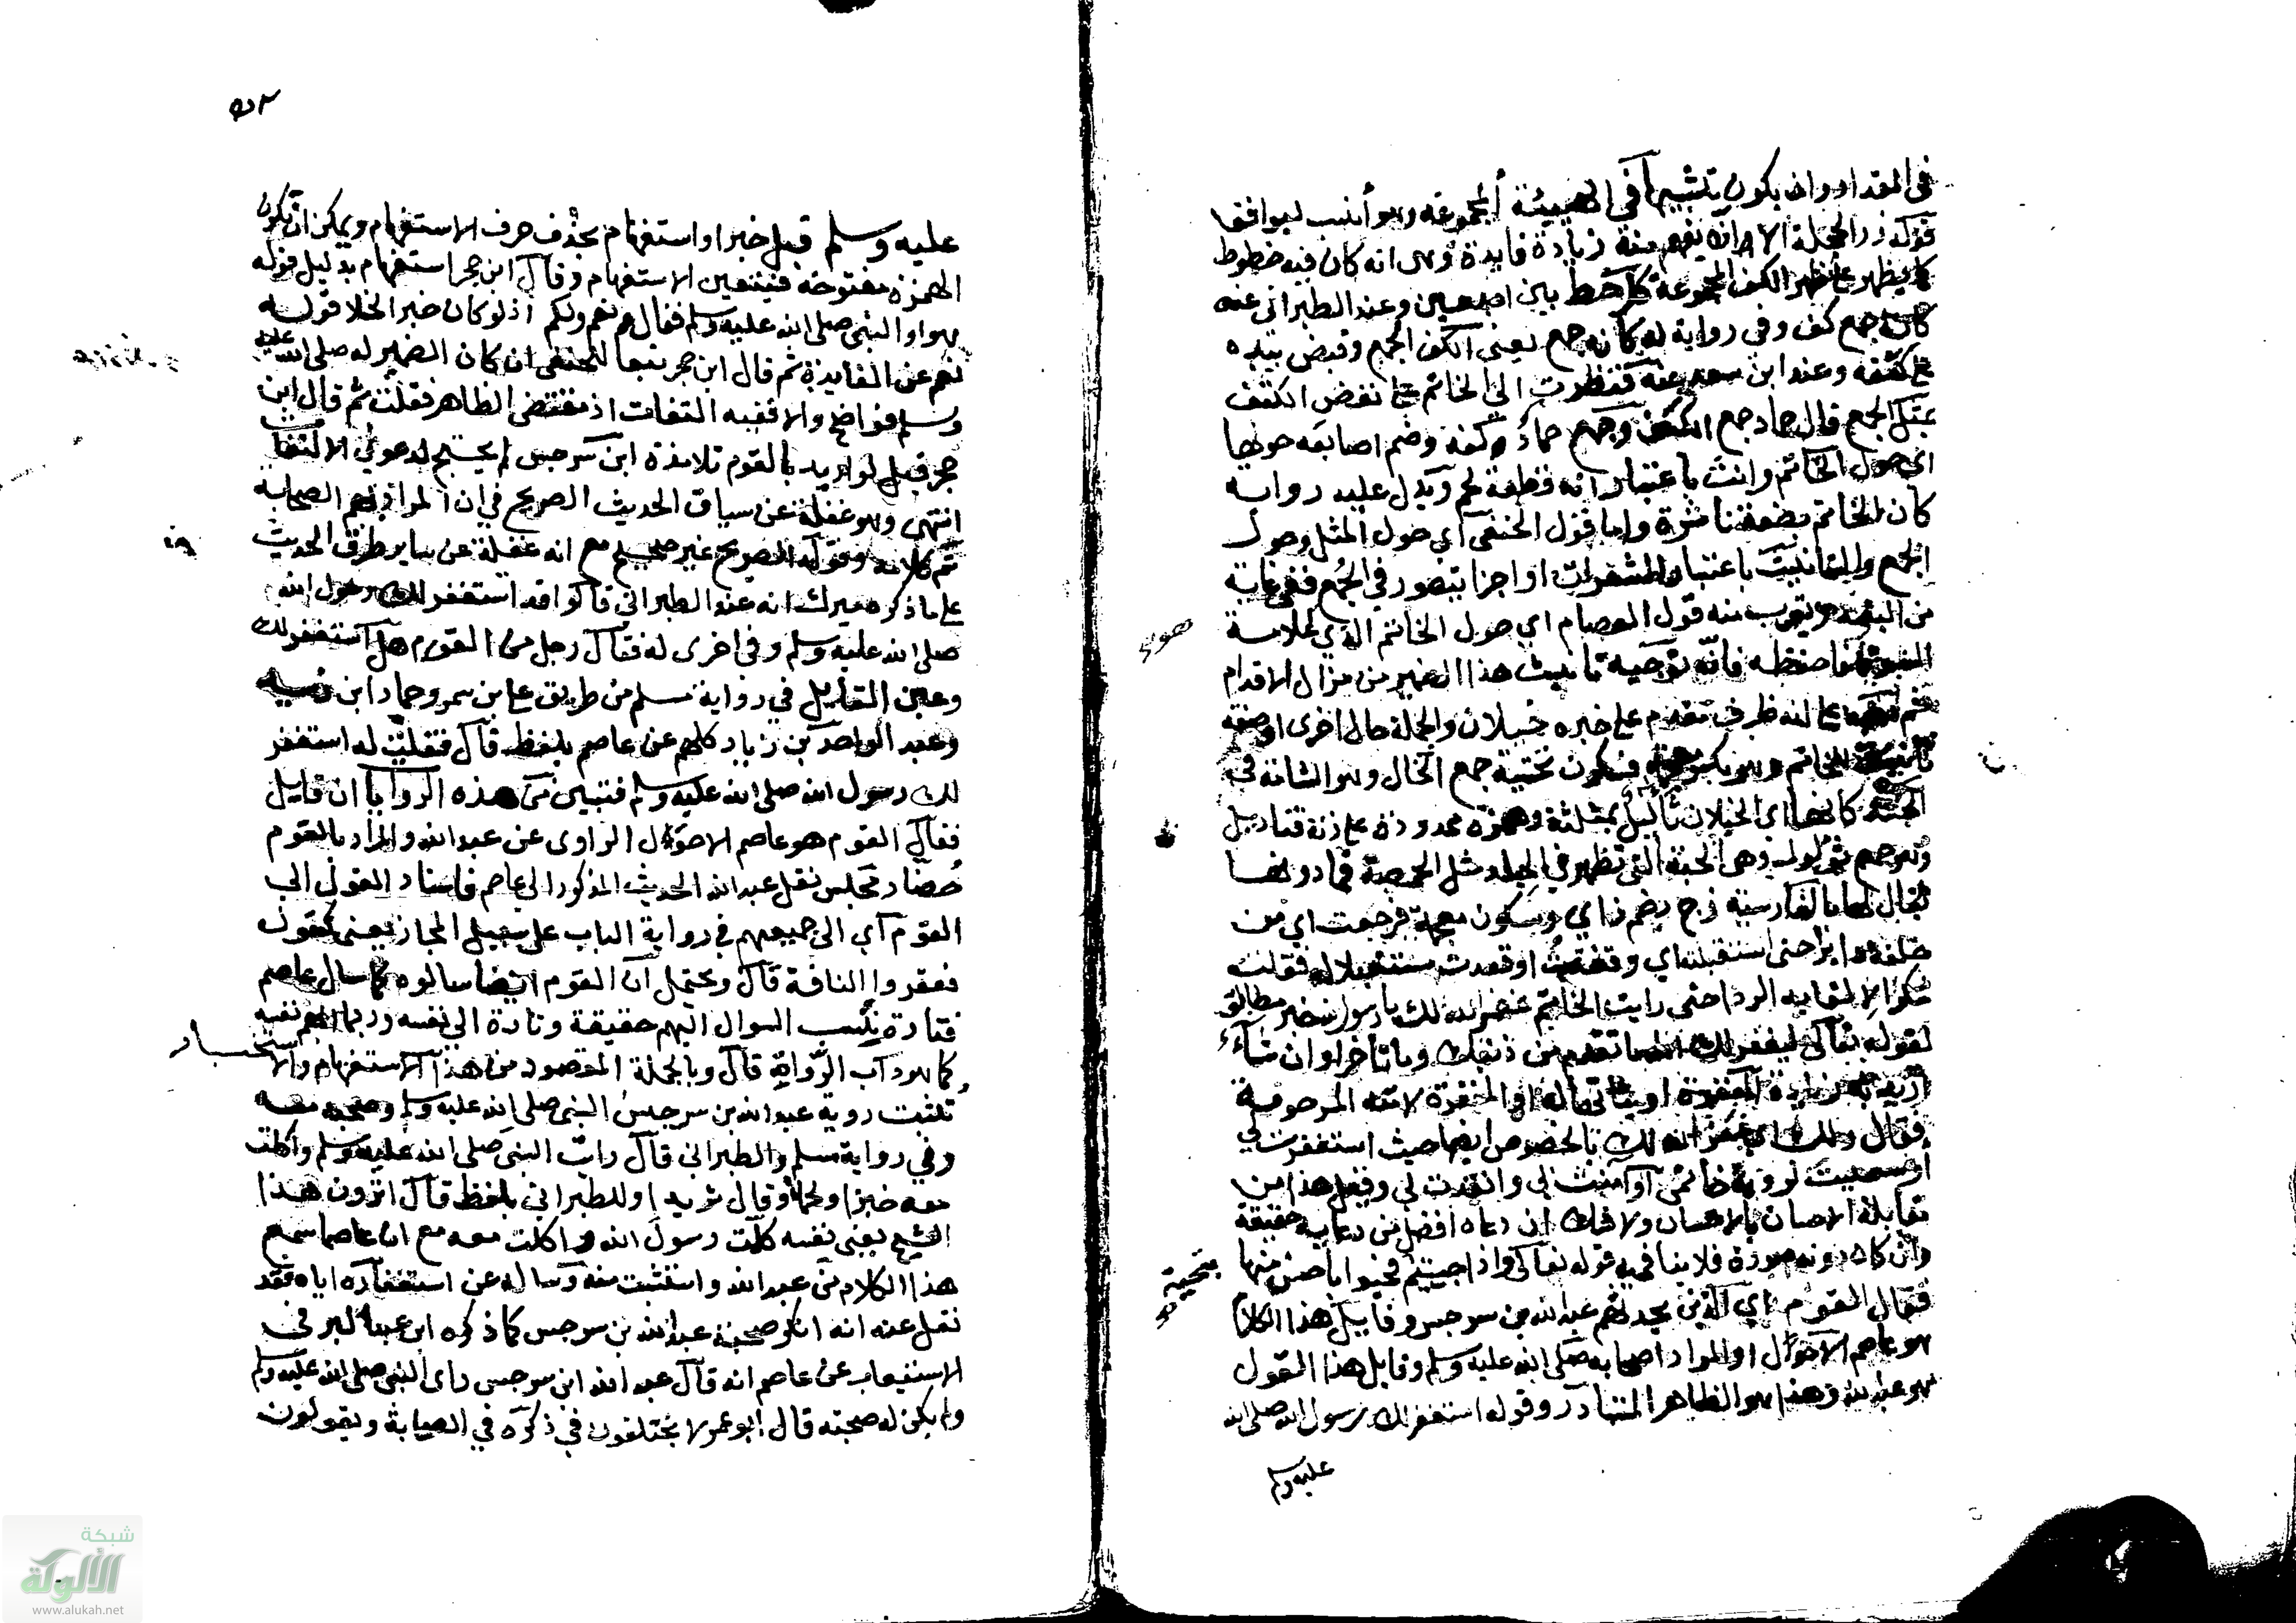 في المقدار وان يكون تشبيها في الهيئة المجموعة وهو أنسب ليوافق
قوله زر الحجلة الا انه يفهم منه زيادة فايدة وهى انه كان فيه خطوط
كما يظهر على ظهر الكف المجموعة كالخط بين اصبعين وعند الطبراني عنه
كانه جمع كف وفي رواية له كأنه جمع يعنى الكف الجمع وقبض بيده
على كتفه وعند ابن سعد عنه فنظرت الى الخاتم على نغض الكتف
مثل الجمع قال حماد جمع الكف وجمع حماد كفه وضم اصابعه حولها
اي حول الخاتم وانث باعتبار انه قطعة لحم ويدل عليه رواية
كان الخاتم بضعة ناشزة واما قول الحنفي اي حول المثل وحول
الجمع والتانيث باعتبار الشعرات او اجزا يتصور في الجمع ففي غاية
من البعد ويقرب منه قول العصام اي حول الخاتم الذي لعلامة
النبوة فاحفظه فانه توجيه تانيث هذا الضمير من مزال الاقدام
على انه ظرف مقدم على خبره خيلان والجملة حال اخرى او صفة
للخاتم وهو بكسر فسكون تحتية جمع الخال وهو الشامة في
الجسد كانها اي الخيلان ثآليل بمثلثة وهمزة ممدودة على زنة قناديل
وهو جمع ثؤلول وهى الحبة التي تظهر في الجلد مثل الحمصة فما دونها
يقال لها بالفارسية زخ بضم زاي وسكون معجمة فرجعت اي من
خلفه دايرا حتى استقبلته اي وقفت او قعدت مستقبلا له فقلت
شكرا لالقايه الردا حتى رايت الخاتم غفر الله لك يا رسول الله خبر مطابق
لقوله تعالى ليغفر لك الله ما تقدم من ذنبك وما تأخر او انشاء
اريد به زيادة المغفرة او ثباتها له او المغفرة لامته المرحومة
فقال ولك اي غفر الله لك بالخصوص ايضا حيث استغفرت لي
او سعيت لروية خاتمي او آمنت بي وانقدت لي وفعل هذا من
مقابلة الاحسان بالاحسان ولا شك ان دعاه افضل من دعايه حقيقة
وان كان دونه صورة فلا ينافيه قوله تعالى واذا حييتم فحيوا باحسن منها
بتحية
فقال القوم اي الذين يحدثهم عبد الله بن سرجس وقايل هذا الكلام
هو عاصم الاحول او المراد اصحابه صلى الله عليه وسلم وقايل هذا القول
هو عبد الله وهذا هو الظاهر المتبادر وقوله استغفر لك رسول الله صلى الله
عليه وسلم
عليه وسلم قيل خبر او استفهام بحذف حرف الاستفهام ويمكن ان تكون
الهمزة مفتوحة فيتعين الاستفهام وقال ابن حجر استفهام بدليل قوله
هو او النبى صلى الله عليه وسلم فقال نعم ولكم اذ لو كان خبر الخلا قوله
نعم عن الفايدة ثم قال ابن حجر تبعا للحنفي ان كان الضمير له صلى الله عليه
وسلم فواضح والا ففيه التفات اذ مقتضى الظاهر فقلت ثم قال ابن
حجر قيل لو اريد بالقوم تلامذة ابن سرجس لم يحتج لدعوى الالتفات
انتهى وهو غفلة عن سياق الحديث الصريح في ان المراد بهم الصحابة
تم كلامه وقوله الصريح غير صحيح مع انه غفلة عن ساير طرق الحديث
على ما ذكره ميرك انه عند الطبراني قالوا قد استغفر لك رسول الله
صلى الله عليه وسلم وفى اخرى له فقال رجل من القوم هل استغفر لك
وعين القايل في رواية مسلم من طريق علي بن مسهر وحماد ابن زيد
وعبد الواحد بن زياد كلهم عن عاصم بلفظ قال فقلت له استغفر
لك رسول الله صلى الله عليه وسلم فتبين من هذه الروايات ان قايل
فقال القوم هو عاصم الاحول الراوى عن عبد الله والمراد بالقوم
حُضّار مجلس نقل عبد الله الحديث المذكور الى عاصم فاسناد القول الى
القوم اي الى جميعهم في رواية الباب على سبيل المجاز يعنى كقوله
فعقروا الناقة قال ويحتمل ان القوم ايضا سالوه كما سال عاصم
فتارة نسب السوال اليهم حقيقة وتارة الى نفسه وربما ابهم نفسه
كما هو دأب الرواة قال وبالجملة المقصود من هذا الاستفهام والاستخبار
تثبت روية عبد الله بن سرجس النبي صلى الله عليه وسلم وصحبته معه
وفي رواية مسلم والطبراني قال رايت النبي صلى الله عليه وسلم واكلت
معه خبزا ولحما وقال ثريدا وللطبراني بلفظ قال اترون هذا
الشيخ يعنى نفسه كلمت رسول الله واكلت معه مع ان عاصما سمع
هذا الكلام من عبد الله واستثبت منه وساله عن استغفاره اياه فقد
نقل عنه انه انكر صحبة عبد الله بن سرجس كما ذكره ابن عبد البر في
الاستيعاب عن عاصم انه قال عبد الله ابن سرجس راى النبي صلى الله عليه وسلم
ولم يكن له صحبة قال ابو عمر لا يختلفون في ذكره في الصحابة ويقولون
شبكة
الألوكة
www.alukah.net